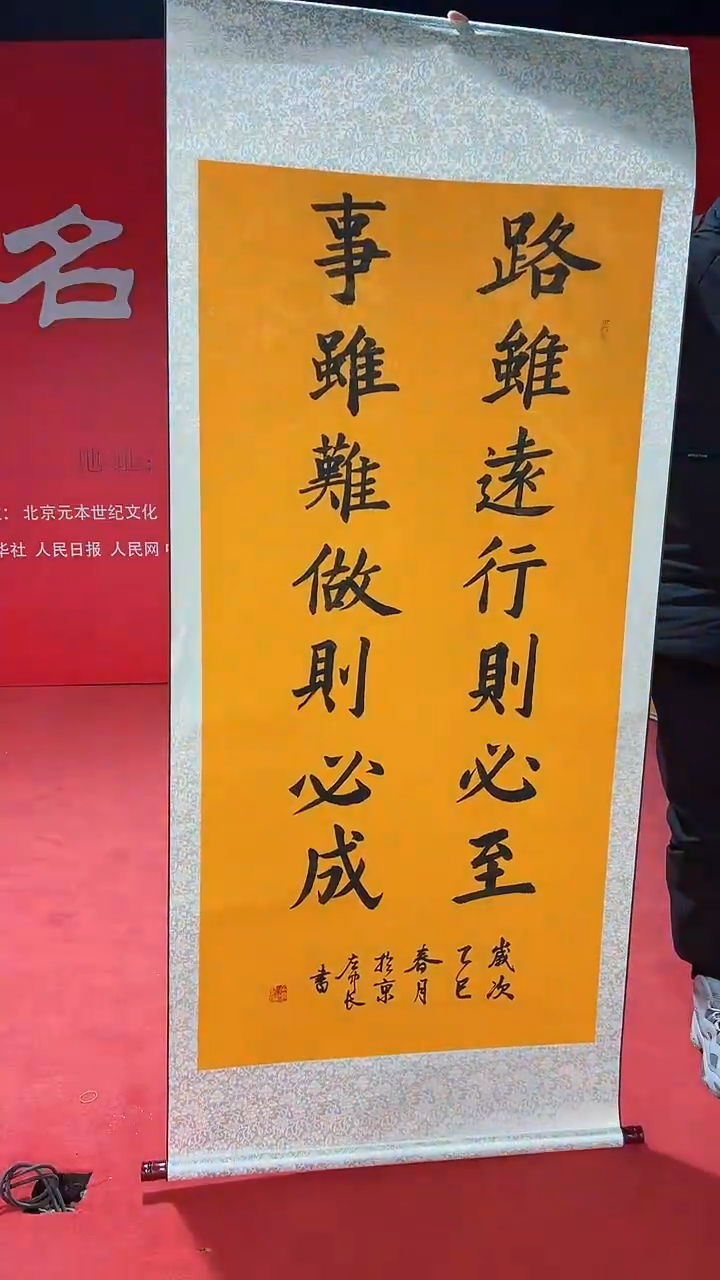 路雖遠行則必至
事雖難做則必成
歲次
乙巳
春月
於京
書
名
地址：
：北京元本世纪文化
华社 人民日报 人民网